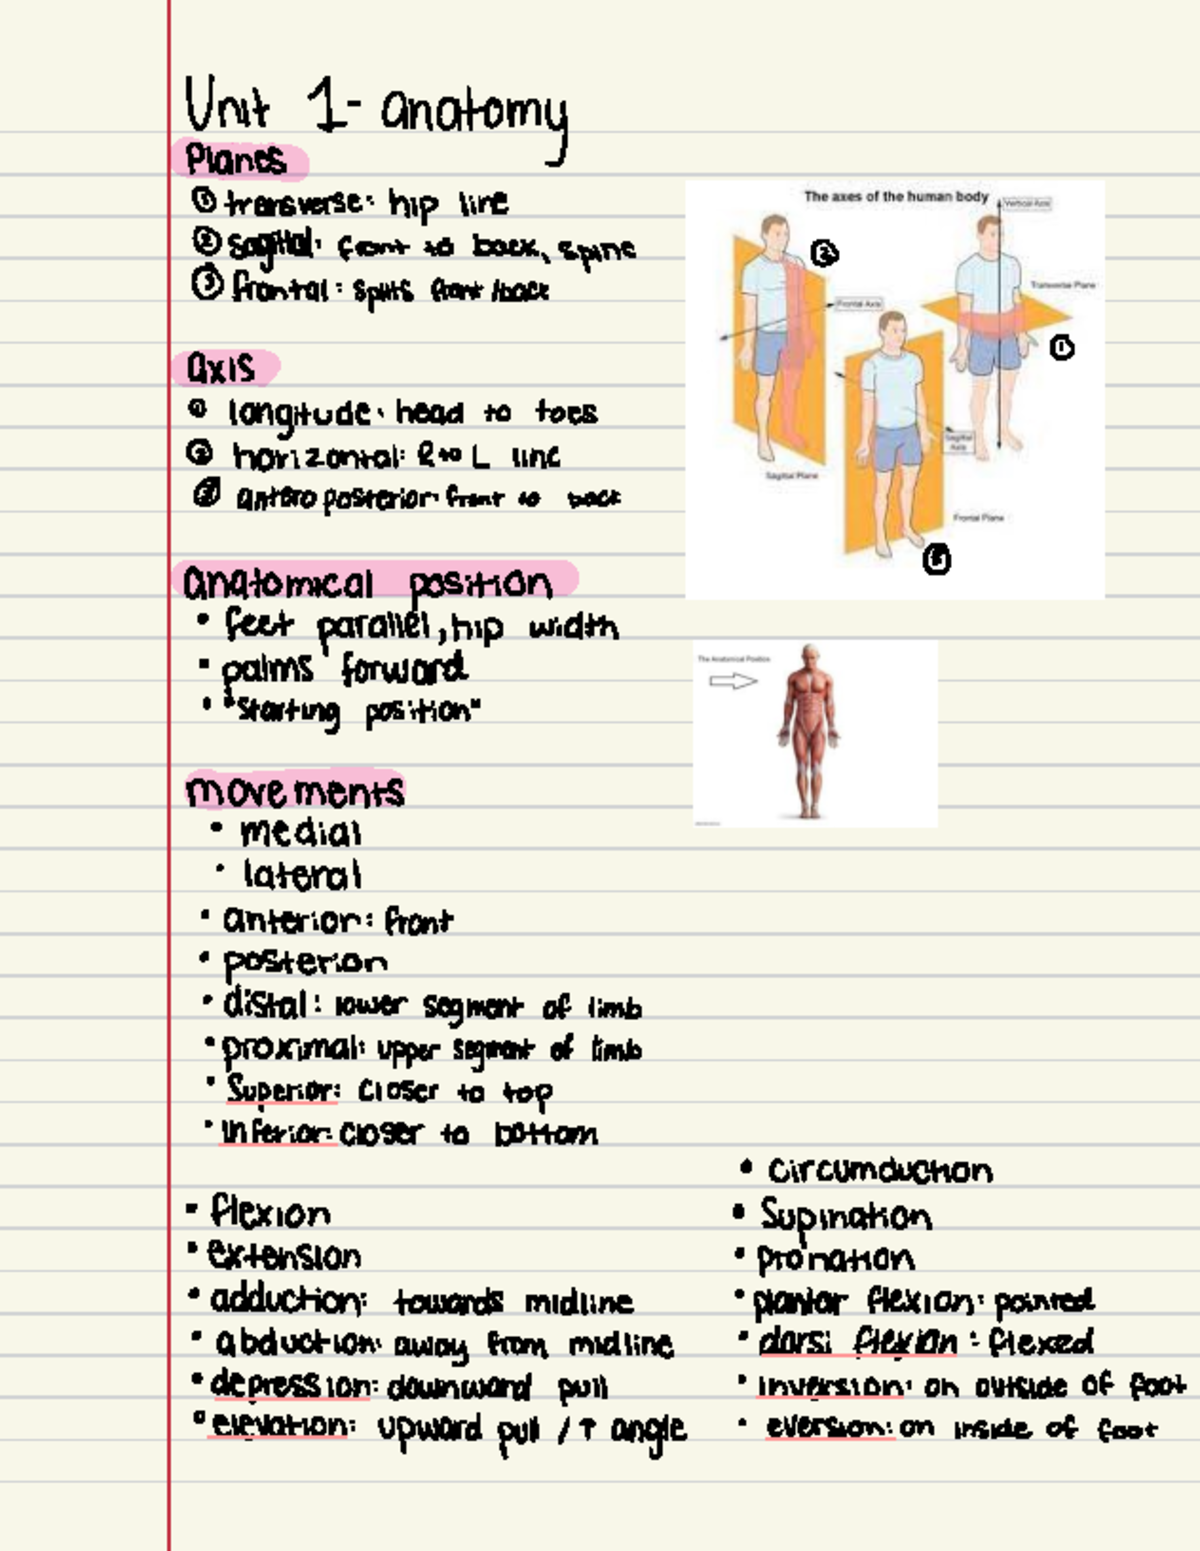 Unit 1- anatomy
Planes
① transverse: hip line
② sagittal: front to back, spine
③ frontal: splits front/back
The axes of the human body
Vertical Axis
②
Transverse Plane
Frontal Axis
①
Sagittal Axis
Sagittal Plane
Frontal Plane
③
axis
① longitude: head to toes
② horizontal: R to L line
③ antero posterior: front to back
anatomical position
• feet parallel, hip width
• palms forward
• "starting position"
The Anatomical Position
movements
• medial
• lateral
• anterior: front
• posterior
• distal: lower segment of limb
• proximal: upper segment of limb
• Superior: closer to top
• inferior: closer to bottom
• flexion
• extension
• adduction: towards midline
• abduction: away from midline
• depression: downward pull
• elevation: upward pull / ↑ angle
• circumduction
• Supination
• pronation
• plantar flexion: pointed
• dorsi flexion: flexed
• inversion: on outside of foot
• eversion: on inside of foot